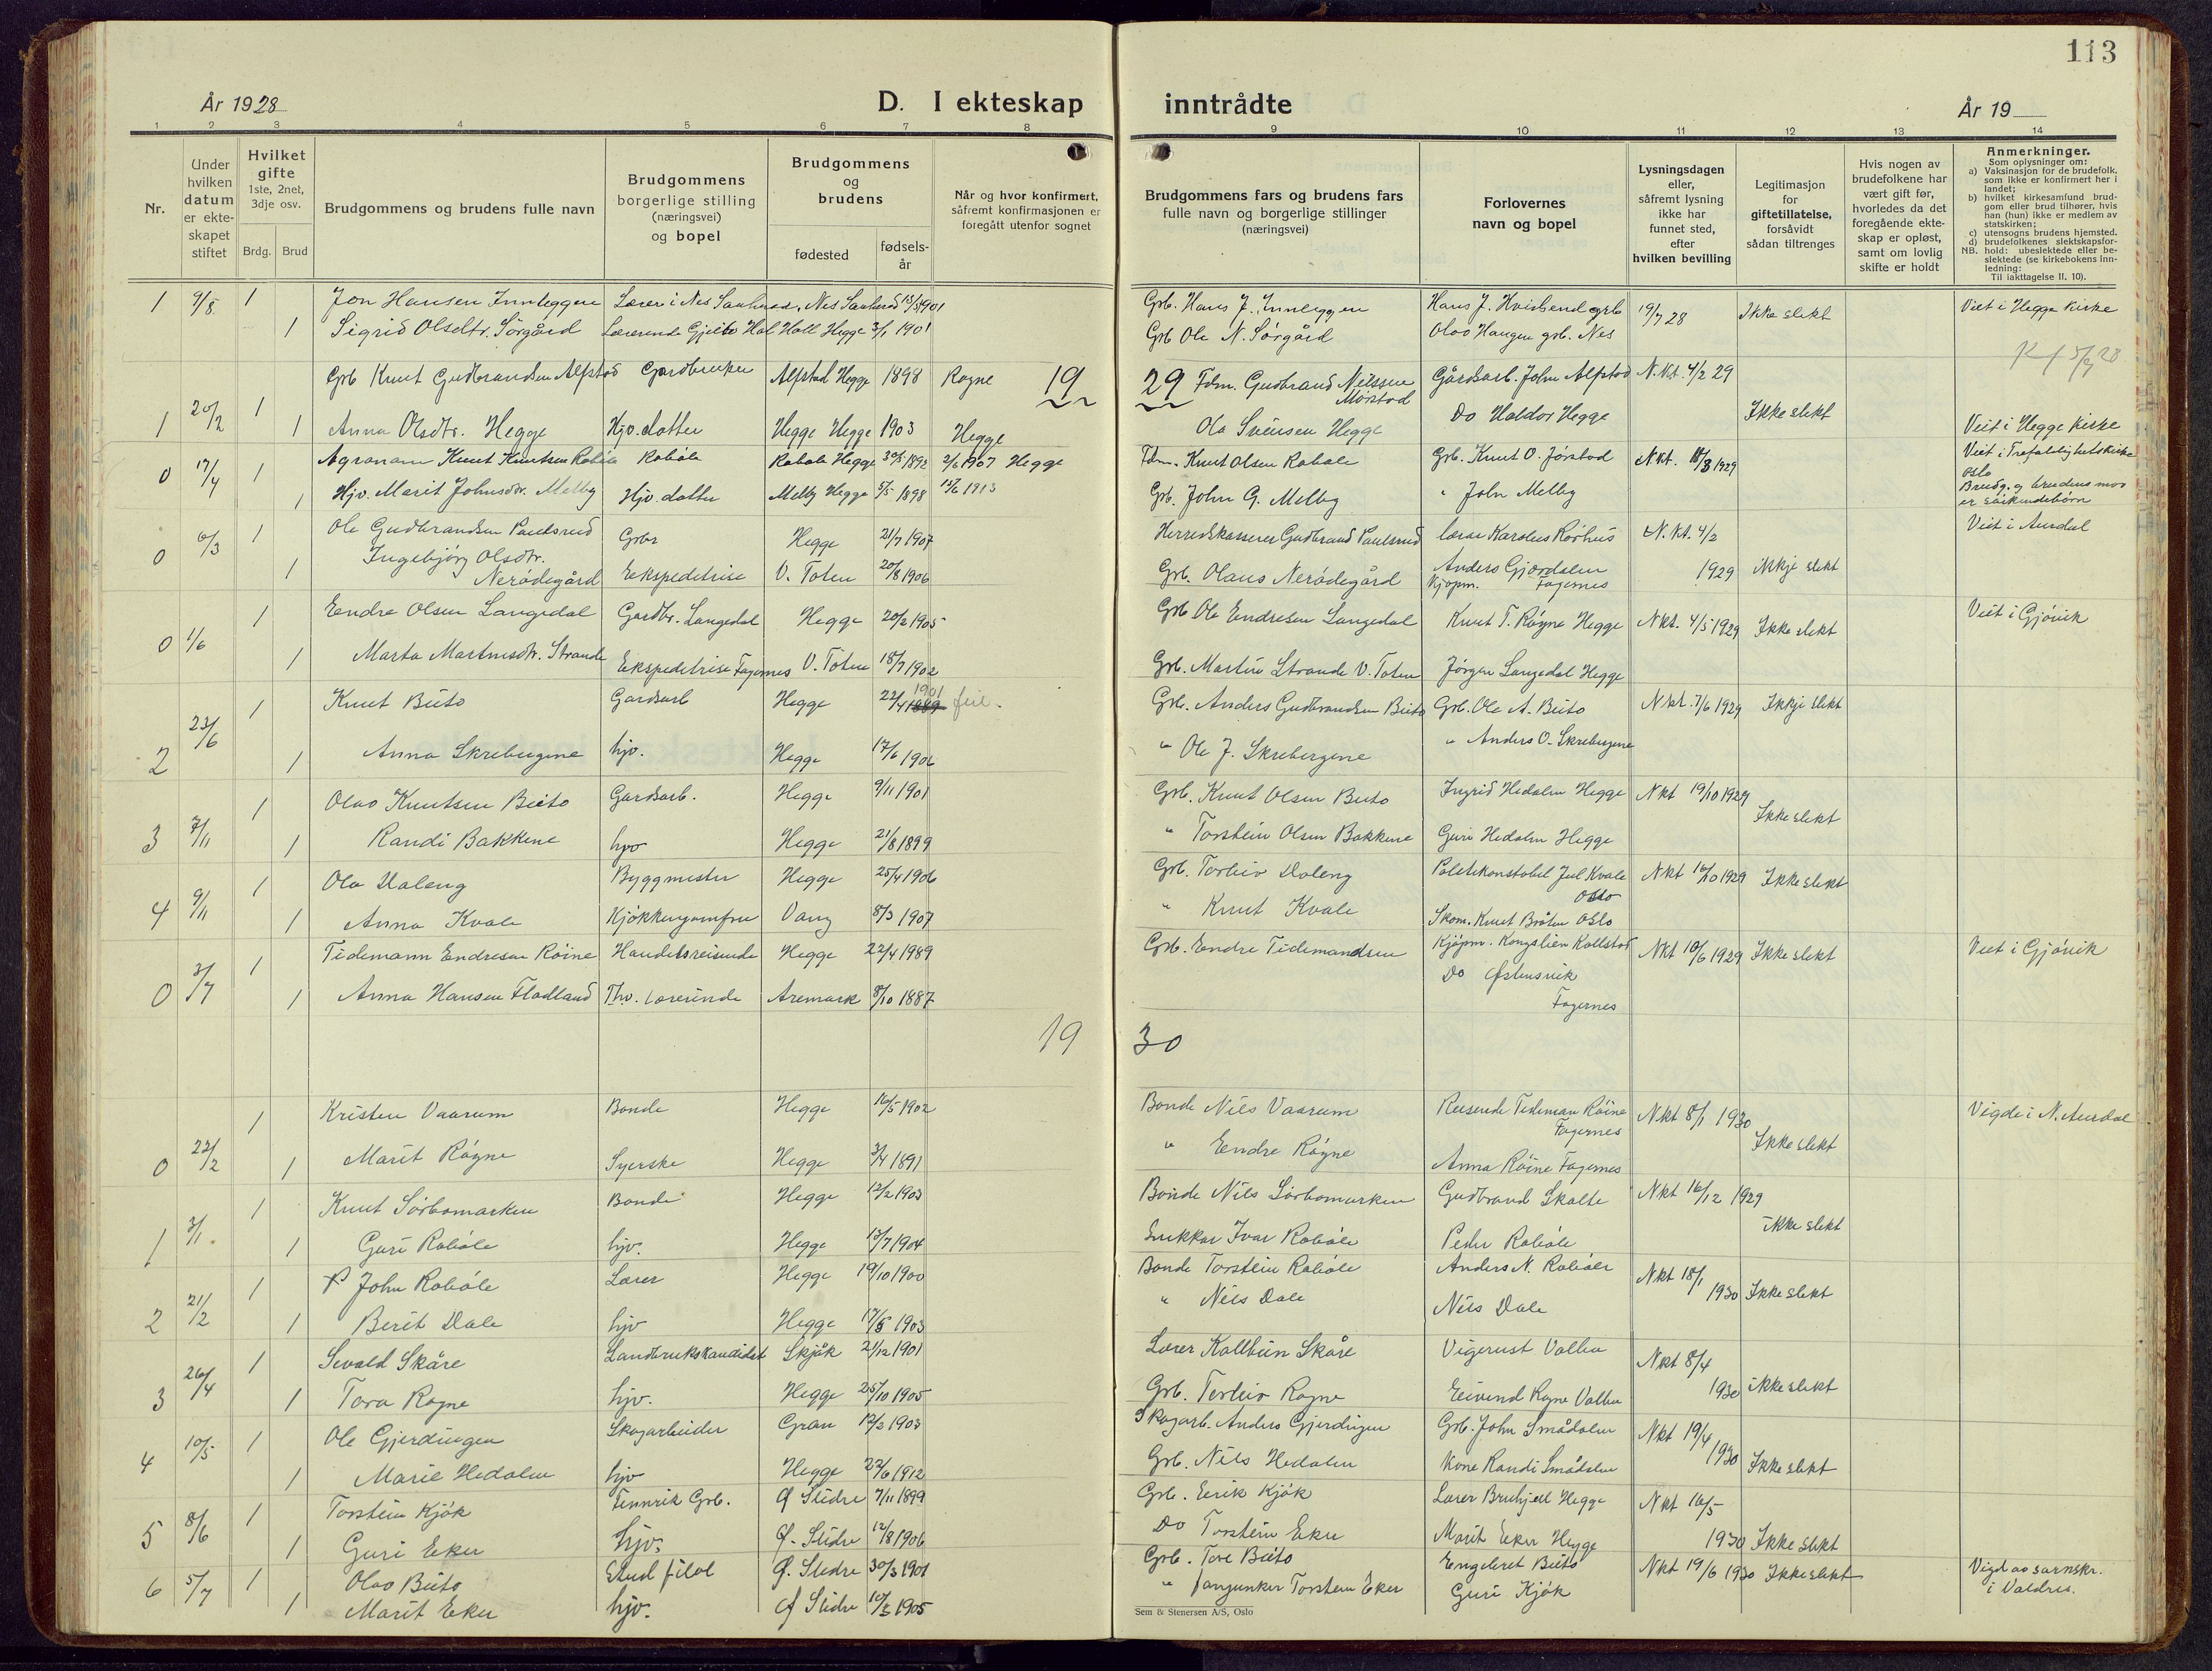 113
År 1928
D. I ekteskap inntrådte
År 19
1 2 3 4 5 6 7 8 9 10 11 12 13 14
Nr.
Under hvilken datum er ekteskapet stiftet
Hvilket gifte 1ste, 2net, 3dje osv.
Brdg. Brud
Brudgommens og brudens fulle navn
Brudgommens borgerlige stilling (næringsvei) og bopel
Brudgommens og brudens
fødested
fødselsår
Når og hvor konfirmert, såfremt konfirmasjonen er foregått utenfor sognet
Brudgommens fars og brudens fars fulle navn og borgerlige stillinger (næringsvei)
Forlovernes navn og bopel
Lysningsdagen eller, såfremt lysning ikke har funnet sted, efter hvilken bevilling
Legitimasjon for giftetillatelse, forsåvidt sådan tiltrenges
Hvis nogen av brudefolkene har vært gift før, hvorledes da det foregående ekteskap er opløst, samt om lovlig skifte er holdt
Anmerkninger.
Som oplysninger om:
a) Vaksinasjon for de brudefolk, som ikke er konfirmert her i landet;
b) hvilket kirkesamfund brudgom eller brud tilhører, hvis han (hun) ikke er medlem av statskirken;
c) utensogns brudens hjemsted.
d) brudefolkenes slektskapsforhold: ubeslektede eller beslektede (se kirkebokens innledning:
NB. Til iakttagelse II. 10).
1 9/8 1 Jon Hansen Innleggen Lærer i Nes Sauherad, Nes Sauherad 1901 Grb. Hans J. Innleggen Hans J. grb 19/7 28 Ikke slekt Viet i Hegge kirke
1 Sigrid Olsdtr. Sørgård Lærerinde Hegge 3/1 1901 Grb Ole N. Sørgård Olav Haugen grb. Nes
5/9 28
19 29
Grb Knut Gudbrandsen Alfstad Gardbruker Alfstad Hegge 1898 Rogne Fdm. Gudbrand Nilssen Mørstad Gårdsarb. John Alfstad N.kt. 4/2 29
1 20/2 1 1 Anna Olsdtr. Hegge Hjv. datter Hegge Hegge 1903 Hegge Ola Svensen Hegge Do Haldor Hegge Ikke slekt Viet i Hegge kirke
0 17/4 1 Agronom Knut Knutsen Robøle Robøle Robøle Hegge 1892 2/6 1907 Hegge Fdm. Knut Olsen Robøle Grb. Knut O. Jørstad N.kt. 18/3 1929 Viet i Trefoldighetskirke Oslo
1 Hjv. Marit Johnsdtr. Melby Hjv. datter Melby Hegge 5/5 1898 15/6 1913 Grb. John G. Melby " John Melby Brudg. og brudens mor er søskendebørn
0 6/3 1 Ole Gudbrandsen Paulsrud Grbr Hegge 21/7 1907 Herredskasserer Gudbrand Paulsrud lærer Karolus Rørhus N.kt. 4/2 Viet i Aurdal
1 Ingebjørg Olsdtr. Nerødegård Ekspeditrise V. Toten 20/8 1906 Grb. Olaus Nerødegård Anders Gjørdalen Kjøpm. Fagernes 1929 ikkje slekt
0 1/6 1 Endre Olsen Langedal Gardbr. Langedal Hegge 20/2 1905 Grb Ole Endresen Langedal Knut T. Røgne Hegge Nkt. 4/5 1929 Ikke slekt Viet i Gjøvik
1 Marta Martinsdtr. Strande Ekspeditrise Fagernes V. Toten 18/7 1902 Grb. Martin Strande V. Toten Jørgen Langedal Hegge
2 23/6 1 Knut Beito Gardsarb Hegge 22/4 1889 1901 feil. Grb. Anders Gudbrandsen Beito Grb. Ole A. Beito Nkt. 7/6 1929 Ikkje slekt
1 Anna Skrebergene hjv. Hegge 17/6 1906 " Ole J. Skrebergene " Anders O. Skrebergene
3 7/11 1 Olav Knutsen Beito Gardsarb. Hegge 9/11 1901 Grb. Knut Olsen Beito Ingrid Hedalen Hegge Nkt 19/10 1929 Ikke slekt
1 Randi Bakkene hjv Hegge 21/8 1899 " Torstein Olsen Bakkene Guri Hedalen Hegge
4 9/11 1 Ola Haleng Byggmester Hegge 25/4 1906 Grb. Torleiv Haleng Politikonstabel Jul Kvale Oslo Nkt 16/10 1929 Ikke slekt
1 Anna Kvale Kjøkkenjomfru Vang 8/3 1907 " Knut Kvale Skom. Knut Bråten Oslo
0 3/7 1 Tidemann Endresen Røine Handelsreisende Hegge 22/4 1889 Grb. Endre Tidemandsen Kjøpm. Kongslien Kollstad Nkt 10/6 1929 Ikke slekt Viet i Gjøvik
1 Anna Hansen Flodland Thv. lærerinde Aremark 8/10 1887 Do Østensvik Fagernes
19 30
0 22/2 1 Kristen Vaarum Bonde Hegge 16/5 1902 Bonde Nils Vaarum Reisende Tideman Röine Fagernes Nkt 8/1 1930 Ikke slekt Vigde i N. Aurdal
1 Marit Rögne Syerske Hegge 3/4 1891 " Endre Rögne Anna Röine Fagernes
1 3/1. 1 Knut Sörbomarken Bonde Hegge 12/2 1903 Bonde Nils Sörbomarken Gudbrand Skatte Nkt 16/12 1929 ikke slekt
1 Guri Robøle hjv. Hegge 13/7 1904 Enkkar Ivar Robøle Peder Robøle
2 21/2 1 John Robøle Lærer Hegge 19/10 1900 Bonde Torstein Robøle Anders N. Robøle Nkt 18/1 1930 Ikke slekt
1 Berit Dale hjv Hegge 17/5 1903 " Nils Dale Nils Dale
3 26/4 1 Sevald Skåre Landbrukskandidat Skjåk 21/12 1901 Lærer Kolbein Skåre Vigerust Volbu Nkt 8/4 1930 ikke slekt
1 Tora Rogne hjv. Hegge 25/10 1905 Grb. Torleiv Rogne Eivind Rogne Volbu
4 10/5 1 Ole Gjerdingen Skogarbeider Gran 12/2 1903 Skogarb. Anders Gjerdingen Grb. John Smådalen Nkt 19/4 1930 Ikke slekt
1 Marie Hedalen hjv Hegge 22/6 1912 Grb. Nils Hedalen Kone Randi Smådalen
5 8/6 1 Torstein Kjøk Fennrik Grb. Ø Slidre 7/11 1899 Grb. Eirik Kjøk Lærer Hegge Nkt 16/5 1930 Ikke slekt
1 Guri Eker hjv. Ø. Slidre 12/8 1906 Do Torstein Eker Marit Eker Hegge
6 5/7 1 Olav Beito Stud filol Ø. Slidre 30/3 1901 Grb. Tore Beito Engebret Beito Nkt 19/6 1930 Ikke slekt Vigd av soknskr. i Valdres.
1 Marit Eker hjv. Ø Slidre 1905 " fanjunker Torstein Eker Guri Kjøk
Sem & Stenersen A/S, Oslo